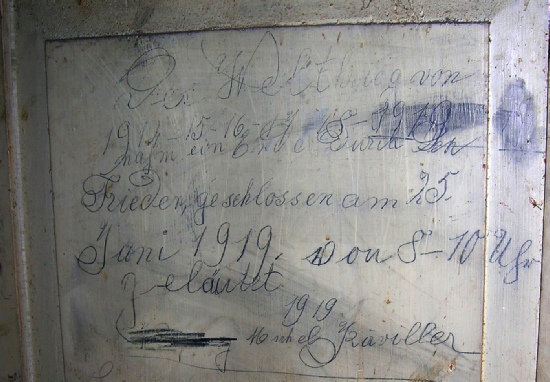 Der Weltkrieg von
1914-15-16-17 18-1919
nahm ein Ende durch den
Frieden, geschlossen am 25.
Juni 1919. von 8-10 Uhr
geläutet
1919
Michel